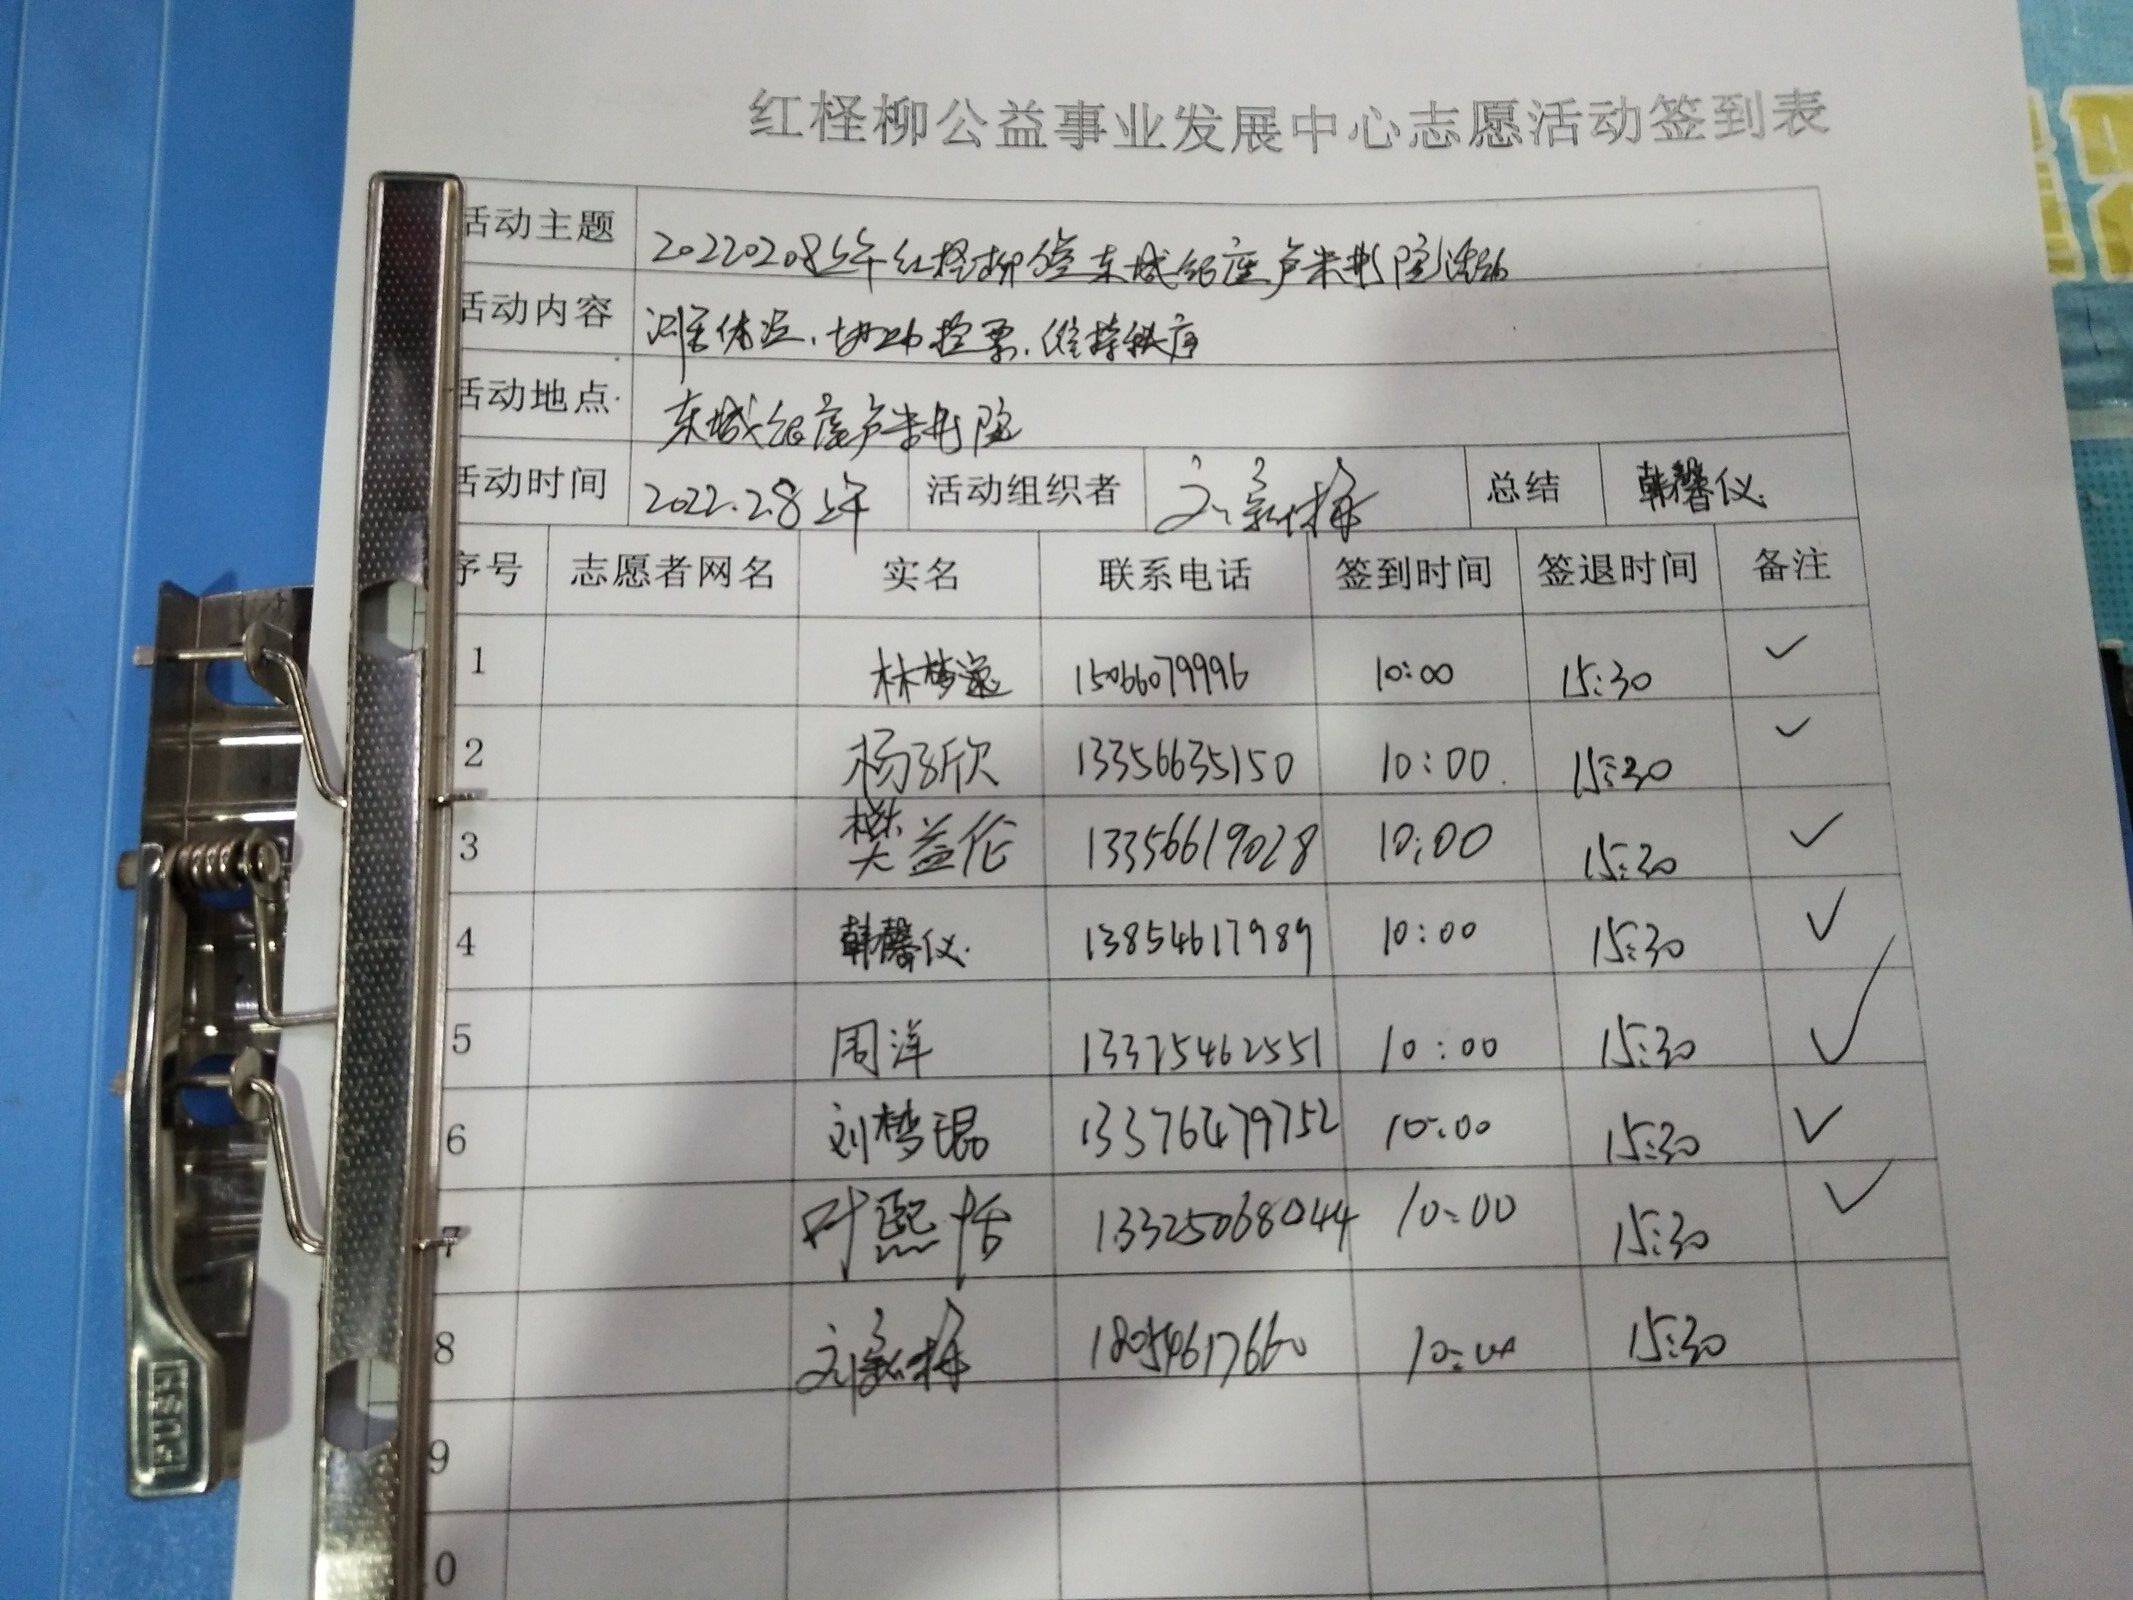 红柽柳公益事业发展中心志愿活动签到表
活动主题 20220208上午红柽柳 东城银座卢米影院活动
活动内容 测体温、协助检票、维持秩序
活动地点 东城银座卢米影院
活动时间 2022.2.8上午 活动组织者 总结 韩馨仪
序号 志愿者网名 实名 联系电话 签到时间 签退时间 备注
1 林梦 15066079996 10:00 15:30 ✓
2 杨子欣 13356635150 10:00 15:30 ✓
3 樊益伦 13356619028 10:00 15:30 ✓
4 韩馨仪 13854617989 10:00 15:30 ✓
5 周洋 13375462551 10:00 15:30 ✓
6 刘梦琨 13376479752 10:00 15:30 ✓
7 叶熙恬 13325068044 10:00 15:30 ✓
8 18054617660 10:00 15:30
9
0
PUSH